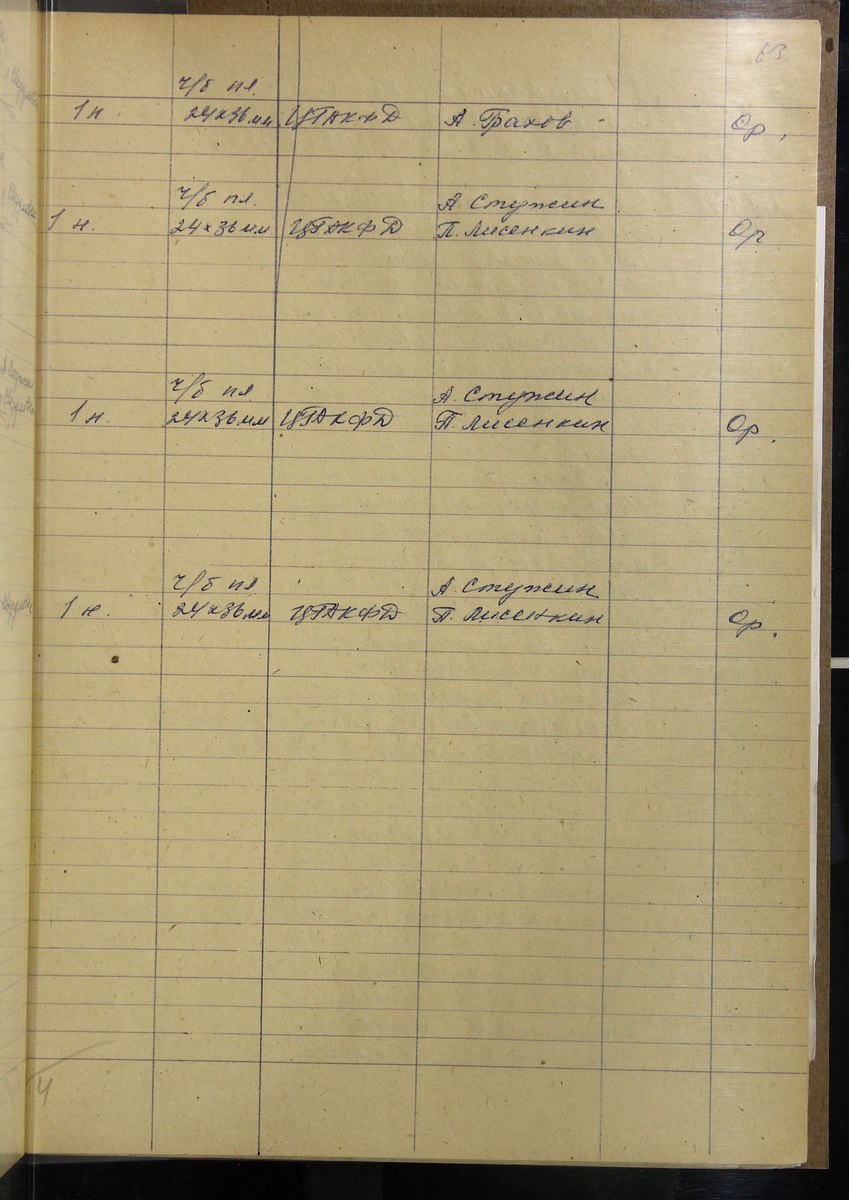 63
ч/б пл.
1 н. 24×36 мм ЦГАКФД А. Грахов Ор.
ч/б пл. А. Стужин
1 н. 24×36 мм ЦГАКФД П. Лисенкин Ор
ч/б пл А. Стужин
1 н. 24×36 мм ЦГАКФД П. Лисенкин Ор.
ч/б пл А. Стужин
1 н. 24×36 мм ЦГАКФД П. Лисенкин Ор.
4